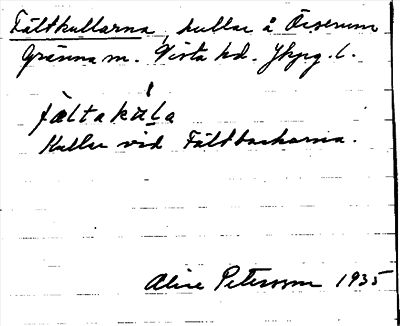 Fältkullarna, kullar å Örserum
Gränna m. Vista hd. Jkpg. l.
fæltakúla
Kullar vid Fältbackarna.
Alice Petersson 1935